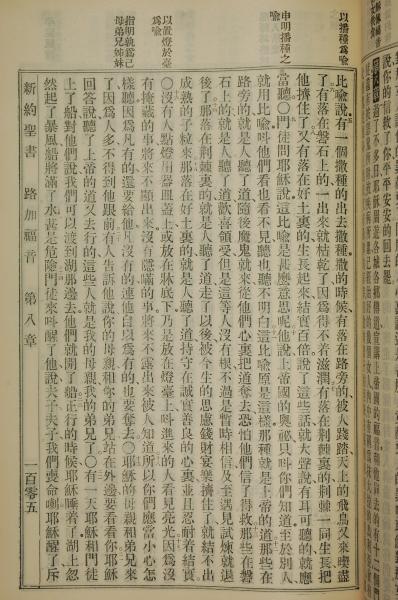 說你的信救了你平平安安的回去罷
過了不多日耶穌周遊各城各鄉傳道宣講上帝國的福音
以播種爲喻
申明播種之喻
以置燈於臺爲喻
指明孰爲己母弟兄姊妹
比喻說有一個撒種的出去撒種撒的時候有落在路旁的被人踐踏天上的飛鳥又來喫盡
了有落在磐石上的一出來就枯乾了因爲得不着滋潤有落在荊棘裏的荊棘一同生長把
他擠住了又有落在好土裏的生長起來結實百倍說了這些話就大聲說有耳可聽的就應
當聽○門徒問耶穌說這比喻是甚麽意思呢他說上帝國的奧祕只叫你們知道至於別人
就用比喻叫他們看也看不見聽也聽不明白這比喻原是這樣那種就是上帝的道那些在
路旁的就是人聽了道隨後魔鬼就來從他們心裏把道奪去恐怕他們信了得救那些在磐
石上的就是人聽了道歡喜領受但是這等人沒有根不過是暫時相信及至遇見試煉就退
後了那落在荊棘裏的就是人聽了道走了以後被今生的思慮錢財宴樂擠住了就結不出
成熟的子粒來那落在好土裏的就是人聽了道持守在誠實善良的心裏並且忍耐着結實
○沒有人點燈用器皿蓋上或放在牀底下乃是放在燈臺上叫進來的人看見亮光因爲沒
有掩藏的事將來不顯出來沒有隱瞞的事將來不露出來被人知道所以你們應當小心怎
樣聽因爲凡有的還要給他凡沒有的連他自以爲有的也要奪去○耶穌的母親和弟兄來
了因爲人多不得到他跟前有人告訴他說你的母親和你的弟兄站在外邊要看看你耶穌
回答說聽了上帝的道又去行的這些人就是我的母親我的弟兄了○有一天耶穌和門徒
上了船對他們說我們可以渡到湖那邊去他們就開了船正行的時候耶穌睡着了湖上忽
然起了暴風船將滿了水甚是危險門徒來叫醒了他說夫子夫子我們喪命喇耶穌醒了斥
新約聖書 路加福音 第八章 一百零五